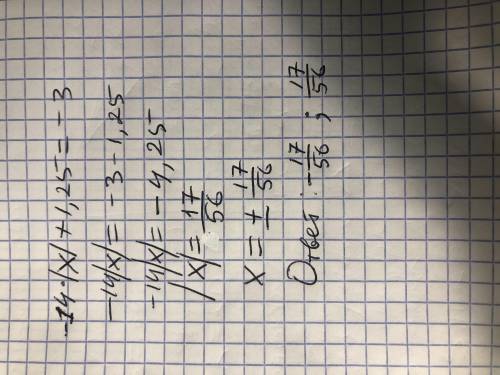 -14·|x|+1,25=-3
-14|x|=-3-1,25
-14|x|=-4,25
|x|=17/56
x=±17/56
Ответ: -17/56; 17/56